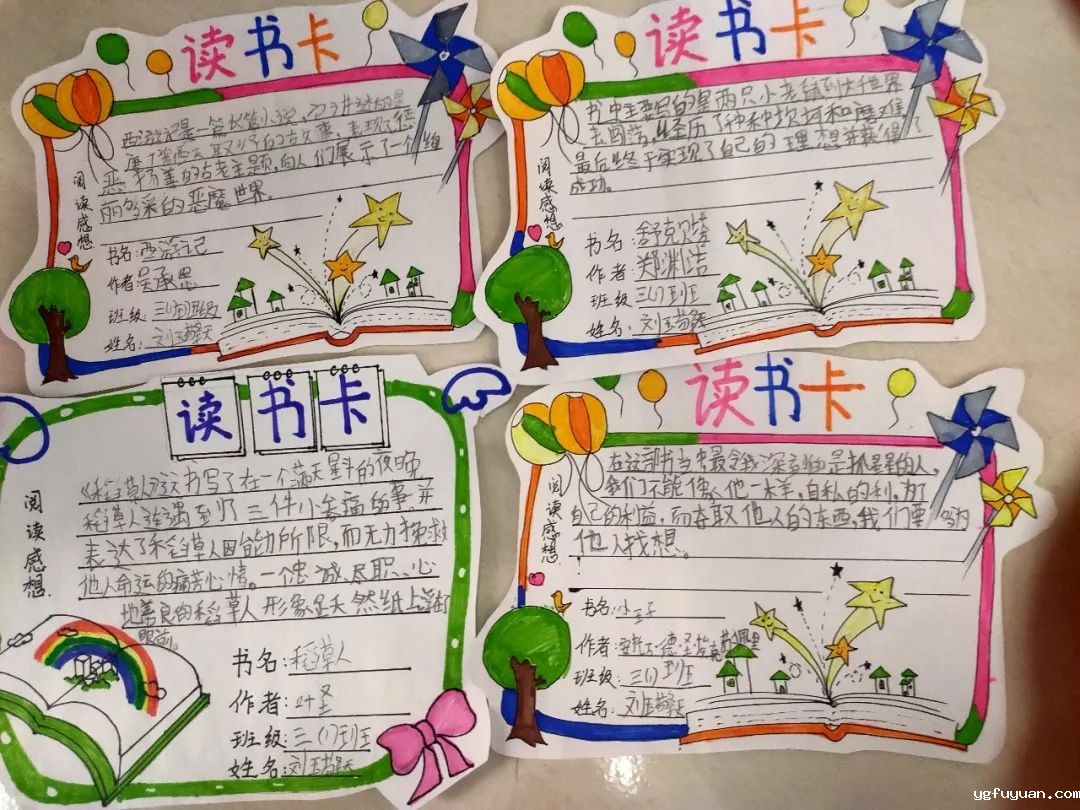 读书卡
阅读感想
西游记是一篇长篇小说,
唐僧西天取
恶扬善的古老主题,向人们展示了一个绚
丽多采的恶魔世界。
书名:西游记
作者:吴承恩
班级:三(1)班
姓名:刘
读书卡
阅读感想
书中主要写的是两只小老鼠到大世界
去闯荡,经历了种种坎坷和磨难
最后终于实现了自己的理想并获得了
成功。
书名:舒克贝塔
作者:郑渊洁
班级:三(1)班
姓名:刘
读书卡
阅读感想
《稻草人》这书写了在一个满天星斗的夜晚
稻草人连遇到了三件小幸福的事,并
表达了稻草人因能力所限,而无力挽救
他人命运的痛苦心情。一个忠诚、尽职、心
地善良的稻草人形象跃然纸上
眼前。
书名:稻草人
作者:叶圣
班级:三(1)班
姓名:刘
读书卡
阅读感想
在这部书当中最令我深有
的人,
我们不能像他一样,自私的利。为了
自己的利益,而夺取他人的东西,我们要多为
他人找想。
书名:小王子
作者:安托万·德·圣埃克苏佩里
班级:三(1)班
姓名:刘
ygfuyuan.com